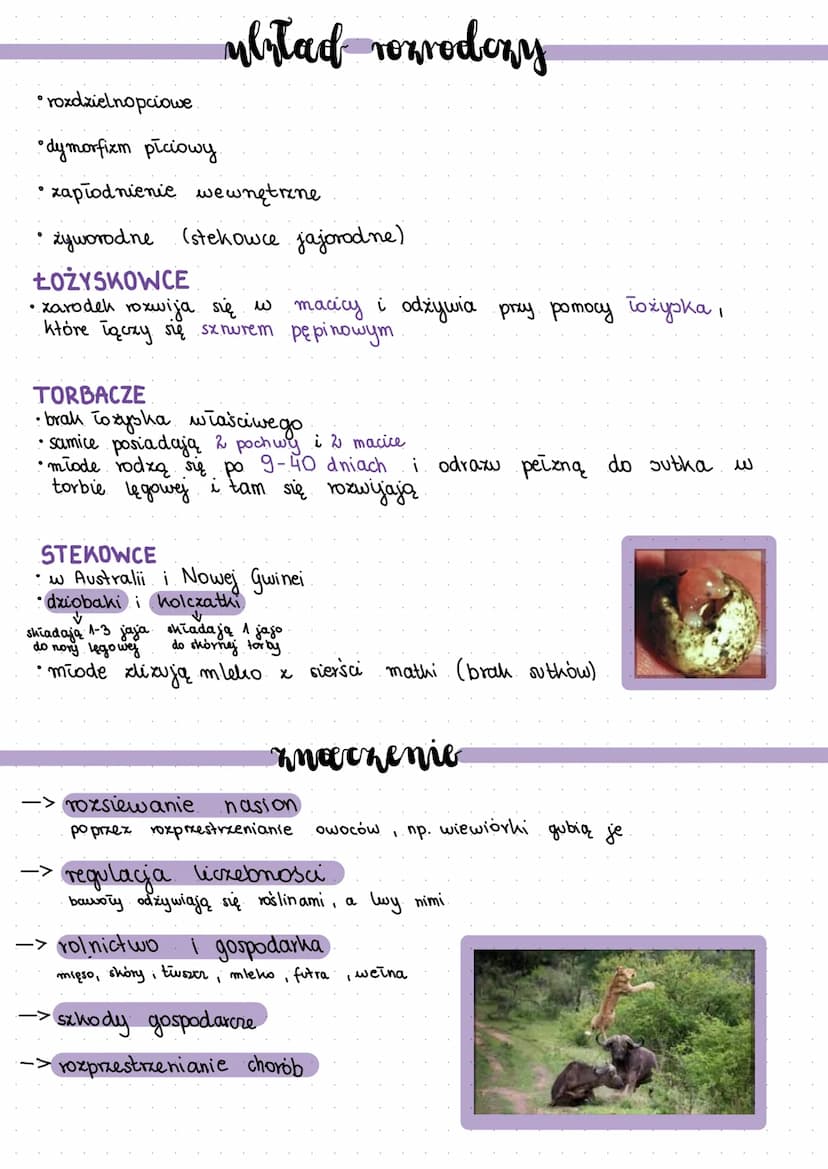 układ rozrodczy
• rozdzielnopciowe
• dymorfizm płciowy
• zapłodnienie wewnętrzne
• żyworodne (stekowce jajorodne)
ŁOŻYSKOWCE
• zarodek rozwija się w macicy i odżywia przy pomocy łożyska,
które łączy się sznurem pępinowym
TORBACZE
• brak łożyska właściwego
• samice posiadają 2 pochwy i 2 macice
• młode rodzą się po 9-40 dniach i odrazu pełzną do sutka w
torbie lęgowej i tam się rozwijają
STEKOWCE
• w Australii i Nowej Gwinei
• dziobaki i kolczatki
składają 1-3 jaja składają 1 jajo
do nory lęgowej do skórnej torby
• młode zlizują mleko z sierści matki (brak sutków)
znaczenie
—> rozsiewanie nasion
poprzez rozprzestrzenianie owoców, np. wiewiórki gubią je
—> regulacja liczebności
bawoły odżywiają się roślinami, a lwy nimi
—> rolnictwo i gospodarka
mięso, skóry, tłuszcz, mleko, futra, wełna
—> szkody gospodarcze
—> rozprzestrzenianie chorób